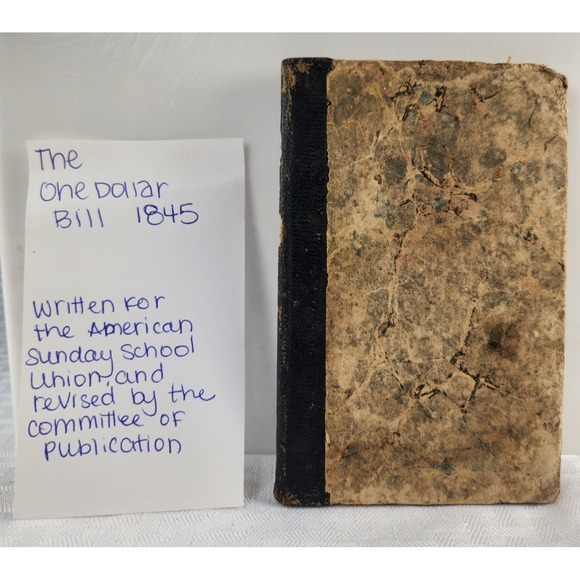 The
One Dollar
Bill 1845
Written For
the American
Sunday School
Union, and
revised by the
committee of
Publication